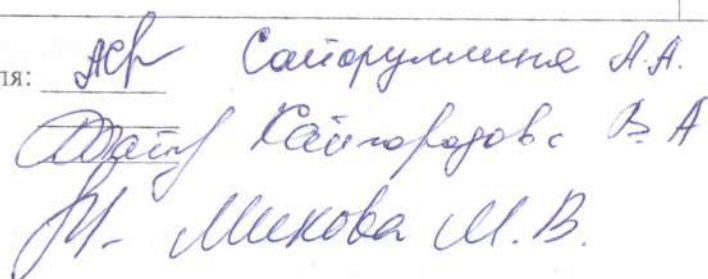 ля: Сайфуллина А.А.
Кайгородова В.А
Микова М.В.